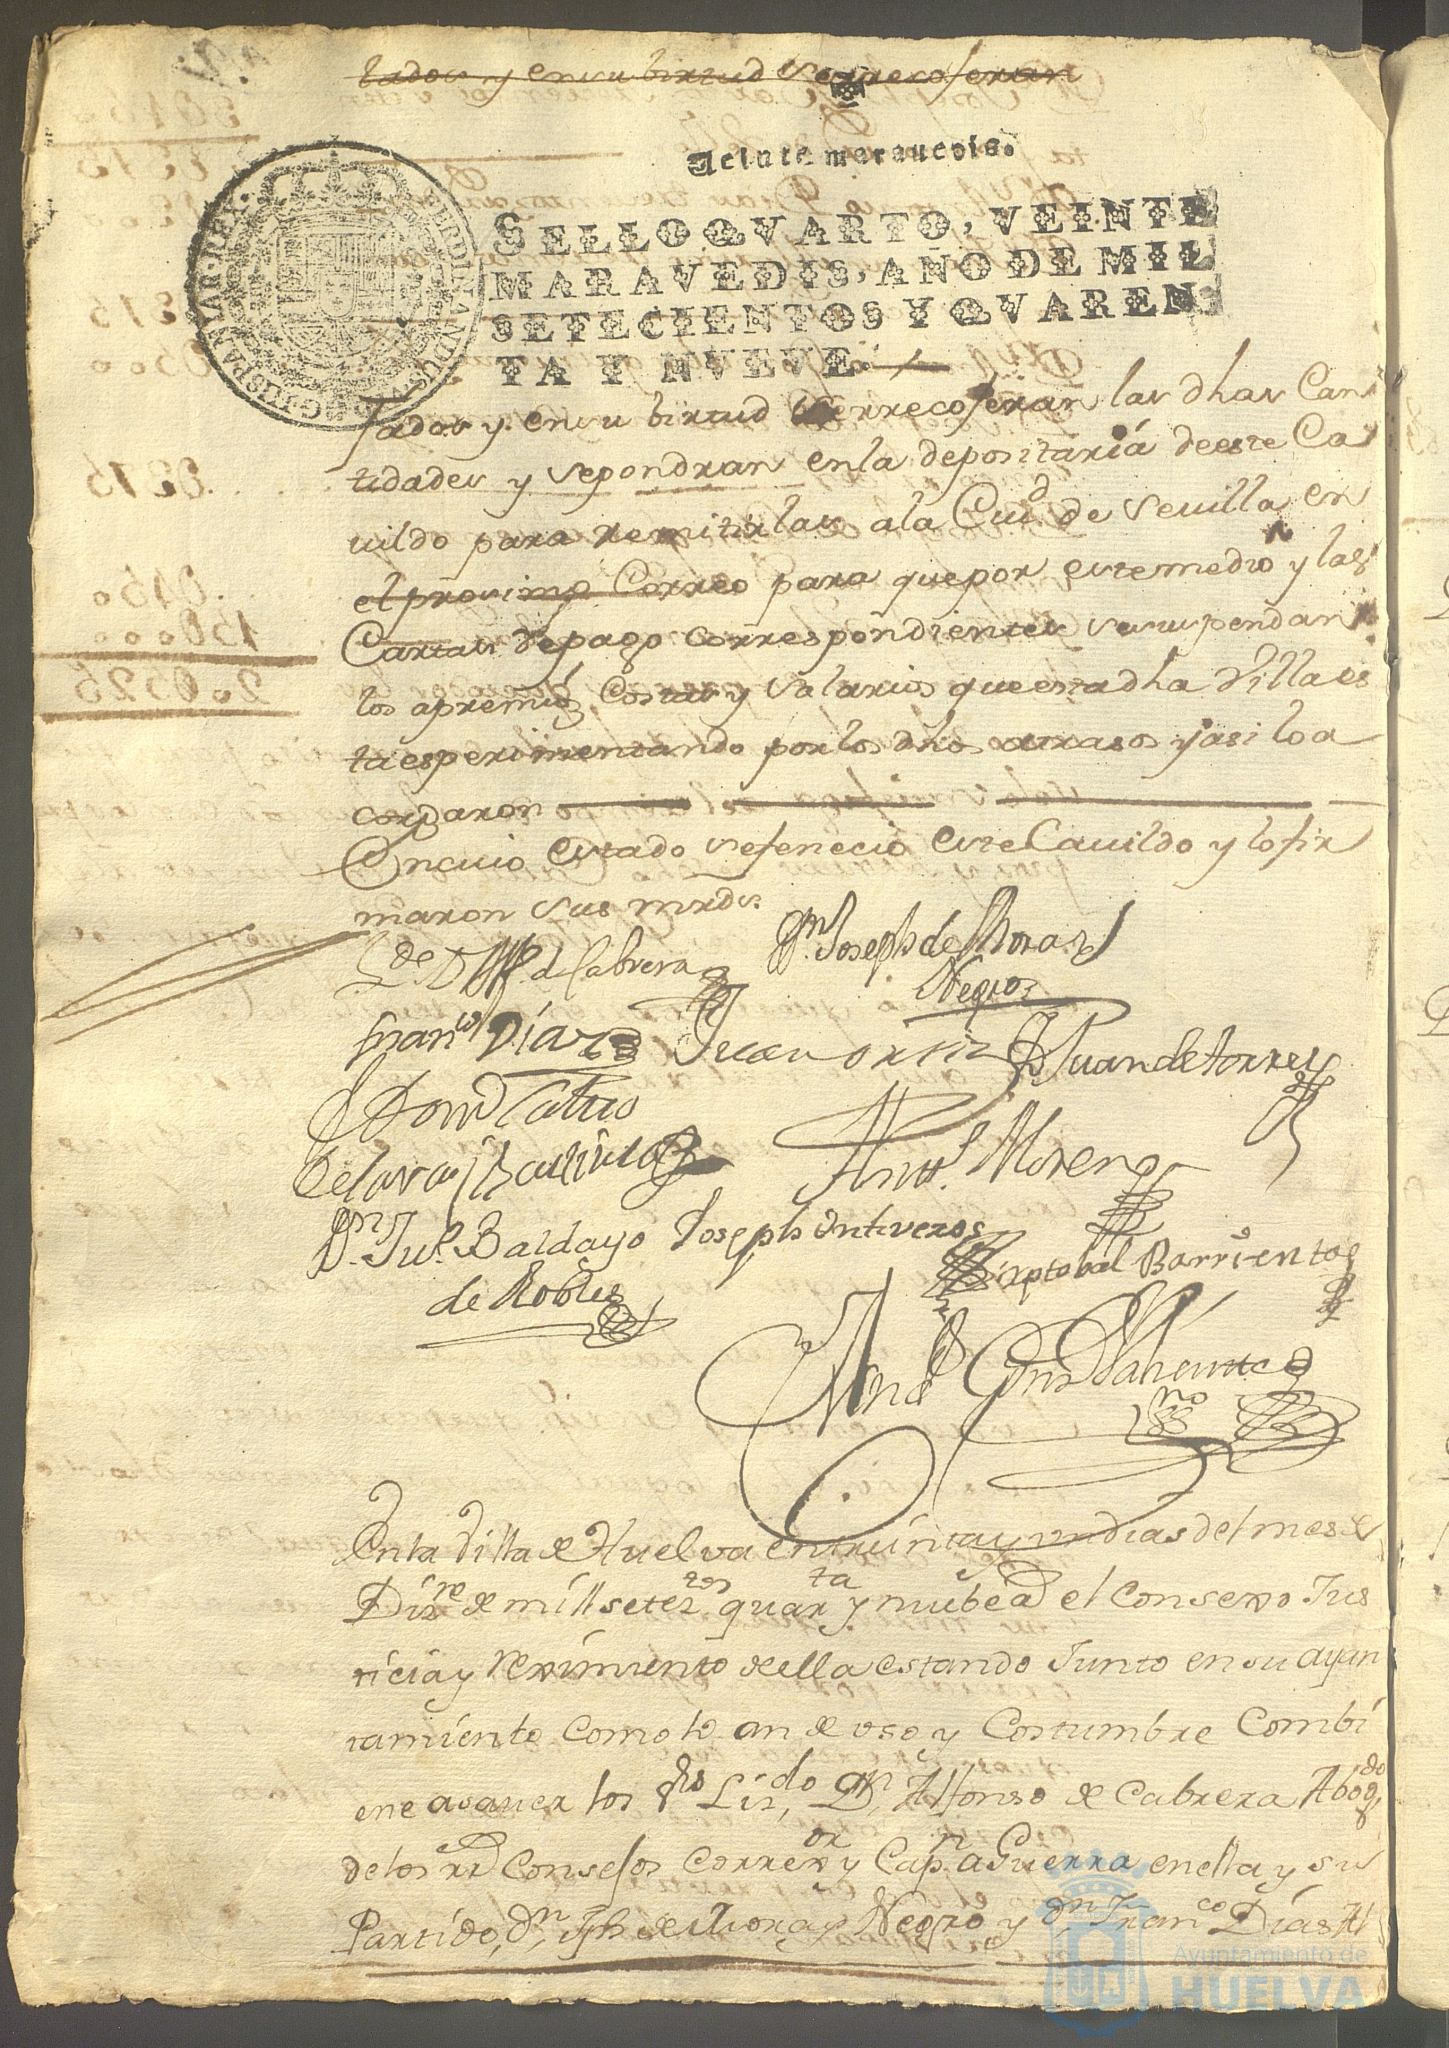 tados y ensu birtud Serrecojeran
Veinte marauedis.
SELLO QVARTO, VEINTE
MARAVEDIS, AÑO DE MIL
SETECIENTOS Y QVAREN
TA Y NVEVE.
tados y ensu birtud Serrecojeran las dhas Can
tidades y sepondran enla depositaria deeste Ca
uildo para remitirlas ala Ciud de Seuilla en
el proximo Correo para quepor estemedio y las
Cartas depago correspondientes sesuspendan
los apremios, Costas y Salarios queestadha Villa es
ta esperimentando porlos dhos atrasos y asi lo a
cordaron
Encuio estado sefenecio esteCauildo y lofir
maron sus mrds.
Lde Dn Alfo de Cabrera
Dn Joseph de Mora
Negro
Franco Diaz
Juan ortiz
Juan de torres
Anto Moreno
Dn Jul Baldayo
de Robles
Joseph ontiveros
Xptobal Barrientos
Enla Villa de Huelva entreinta y un dias del mes de
Dizre de mill seteztos quarta y nuebe el consexo Jus
ticia y reximiento deella estando Junto en su ayun
tamiento como lo an de uso y Costumbre Combi
ene asauer los Sres Lizdo Dn Alfonso de Cabrera Abogdo
delos rr Consejos corredor y Capn a Guerra enella y su
Partido, Dn Jph de Mora y Negro y dn Franco Dias Al
Ayuntamiento de
HUELVA